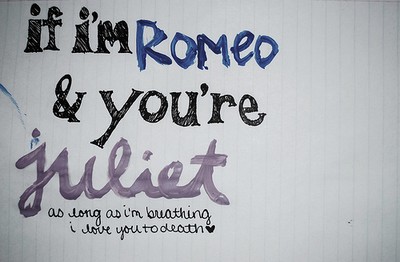 if i'm Romeo
& you're
juliet
as long as i'm breathing
i love you to death♥